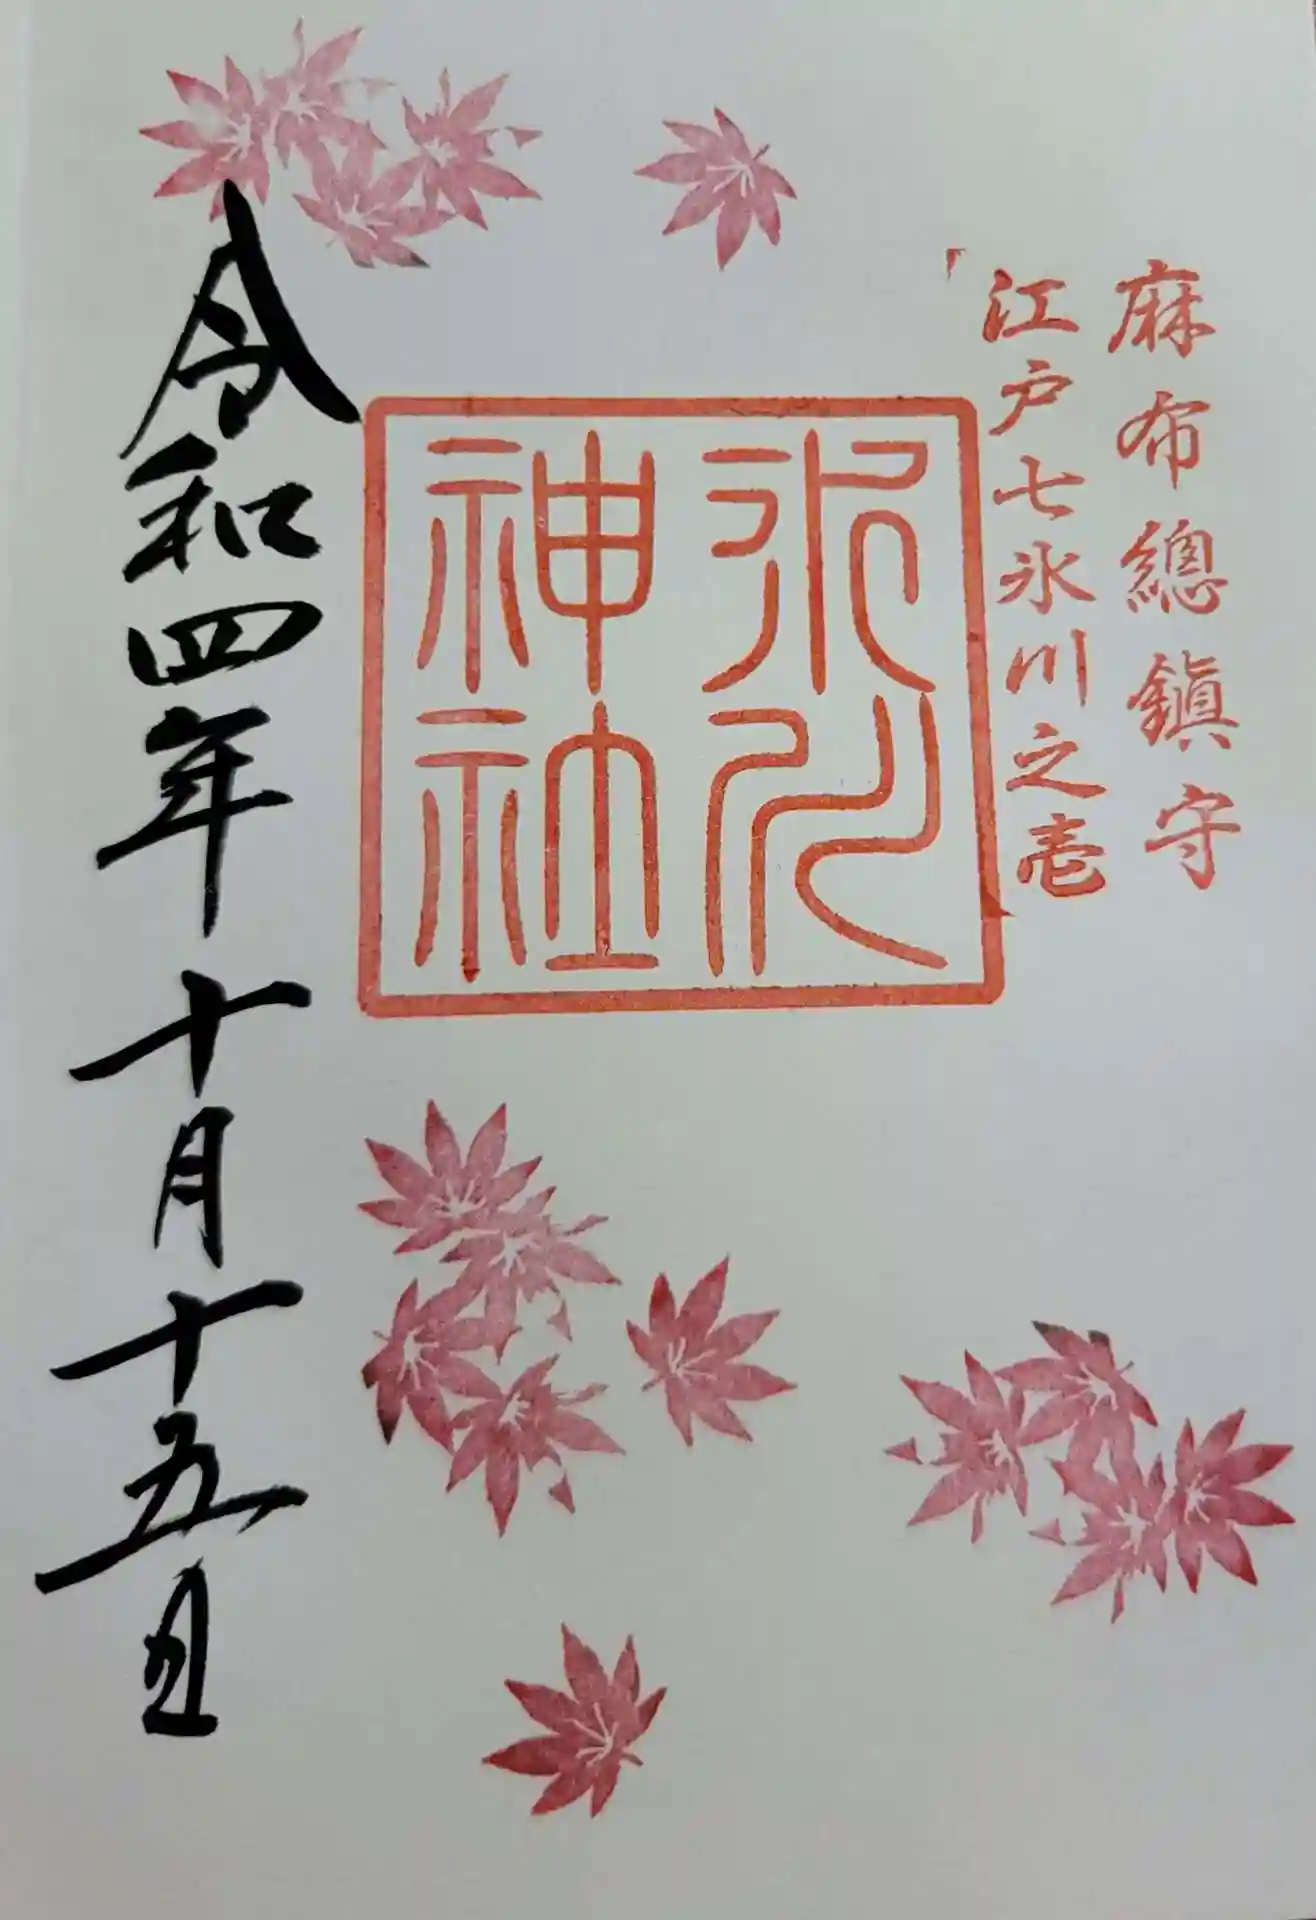 麻布總鎮守
江戸七氷川之壱
氷川
神社
令和四年十月十五日